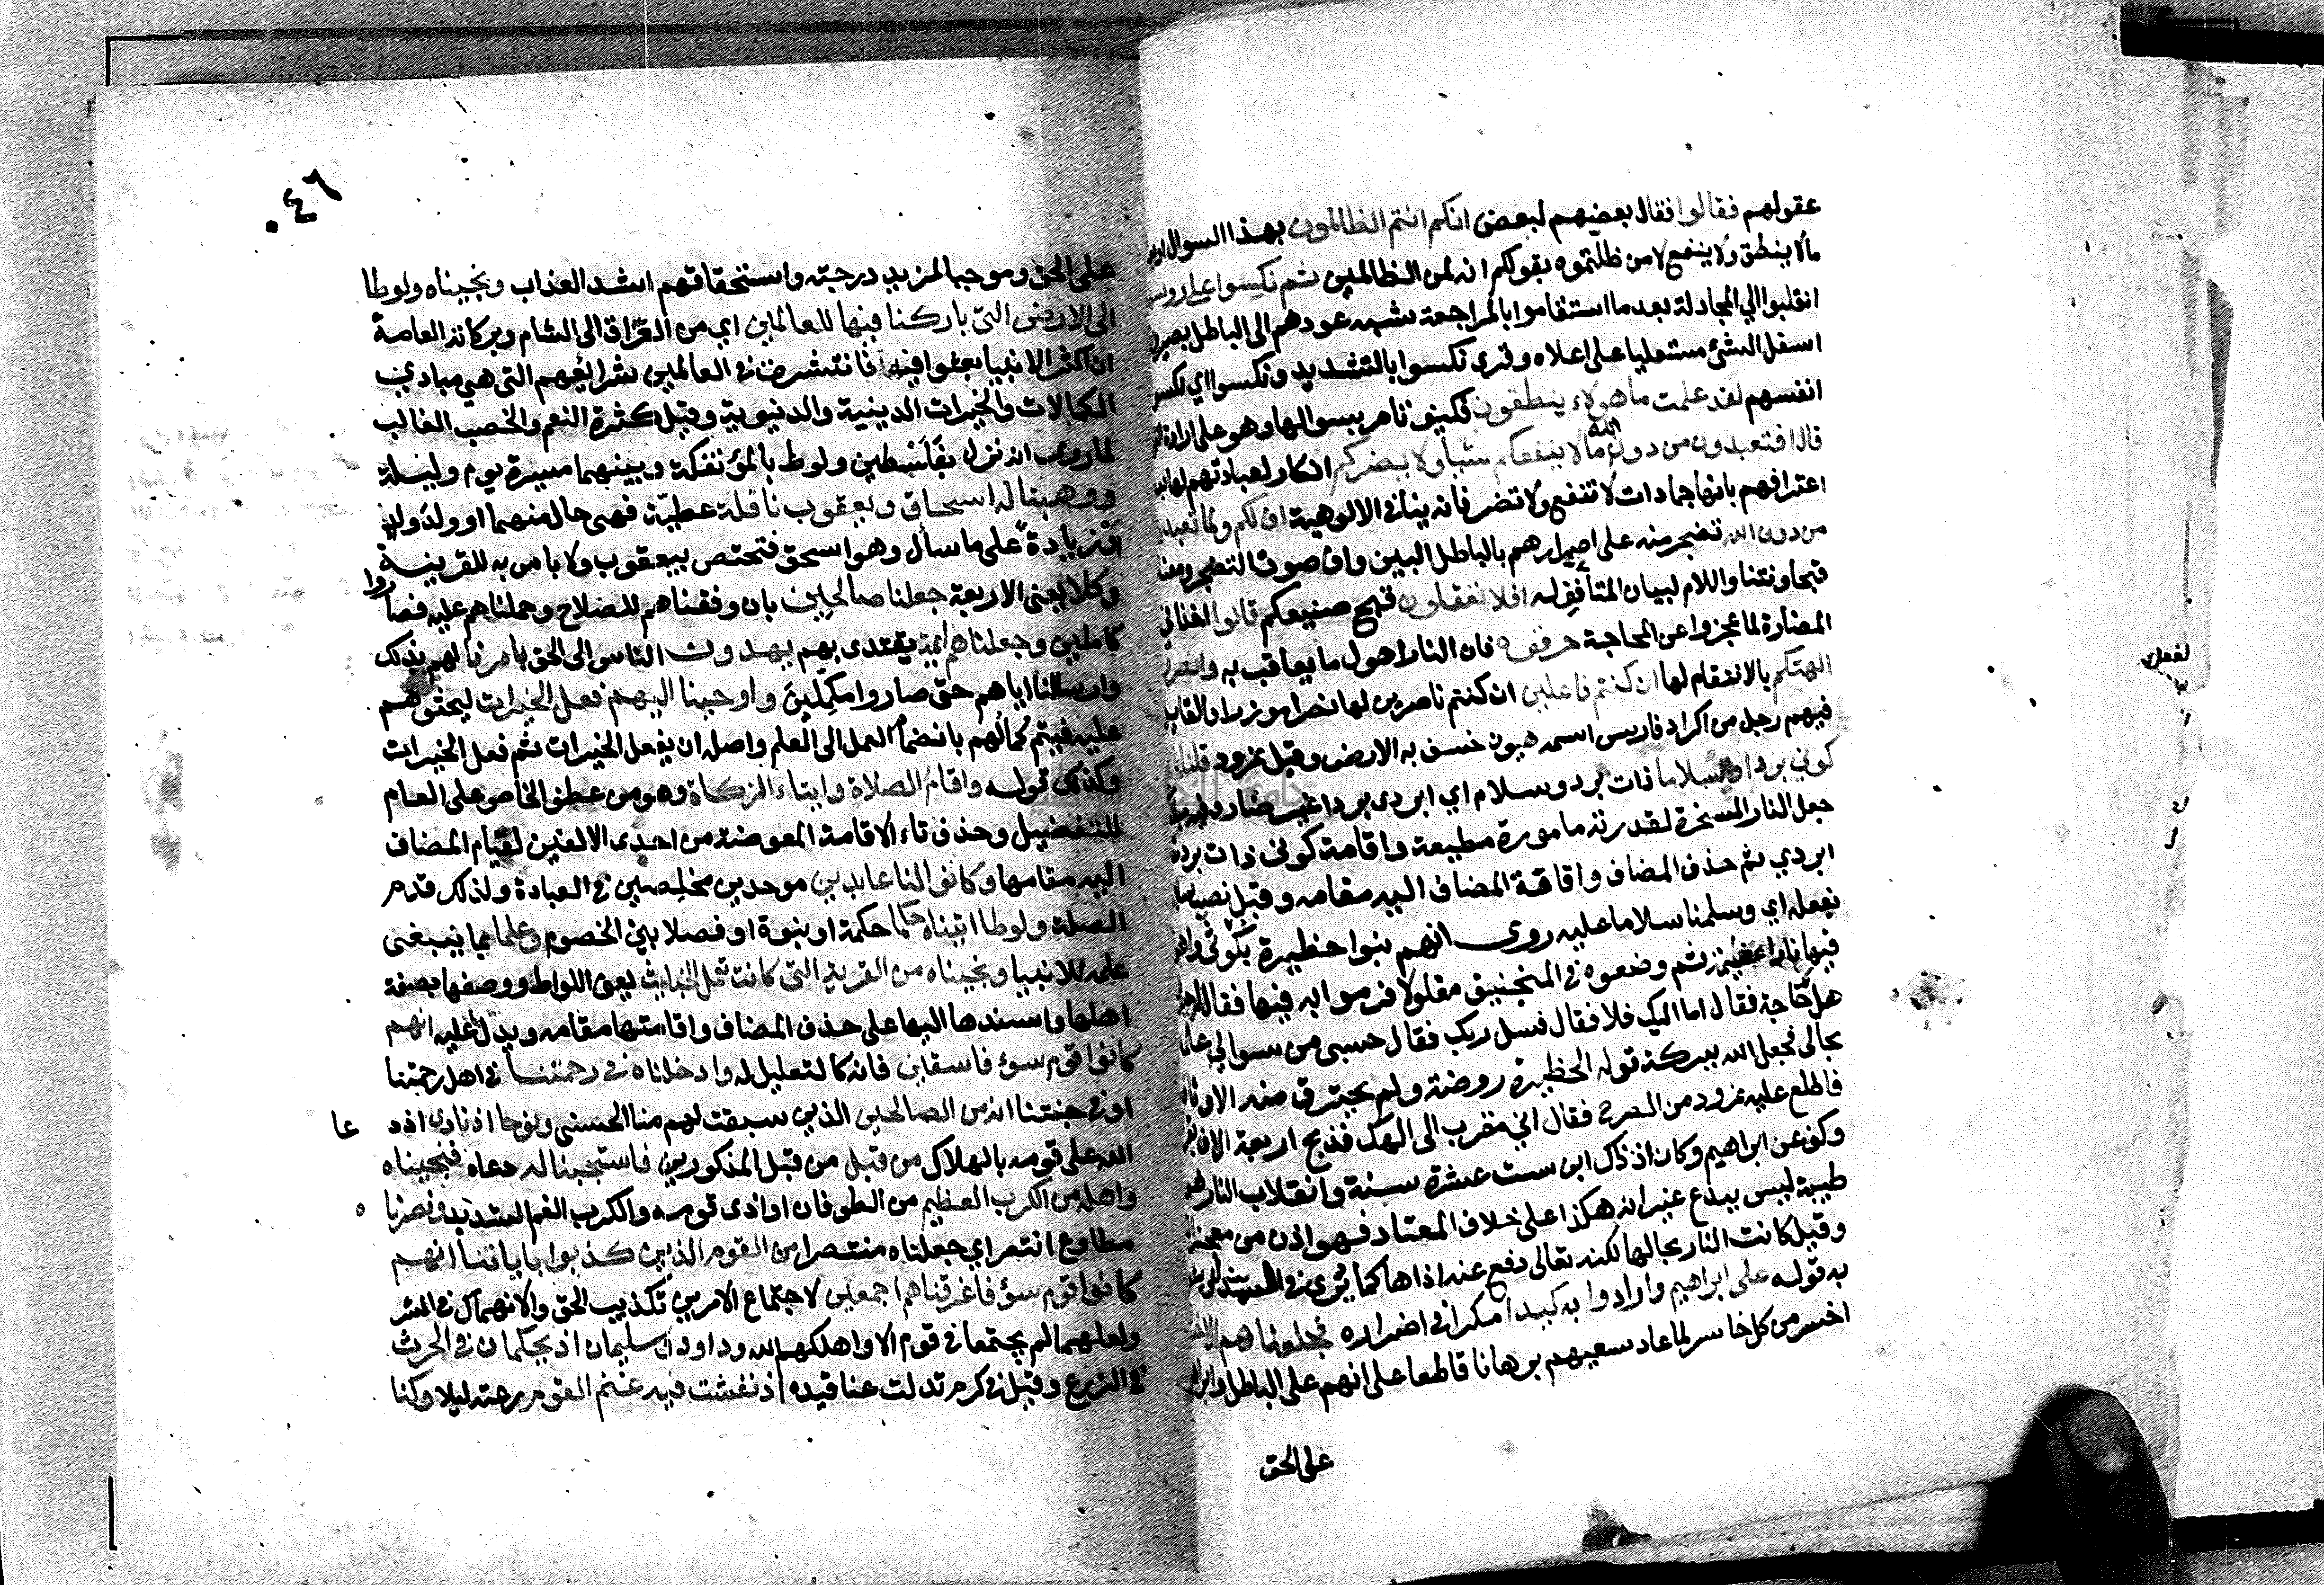 عقولهم فقالوا فقال بعضهم لبعض انكم انتم الظالمون بهذا السوال
مالا ينطق ولا ينفع لا من ظلمتموه بقولكم انه لمن الظالمين ثم نكسوا على
انقلبوا الي المجادلة بعد ما استقاموا بالمراجعة شبه عودهم الى الباطل بصيرورة
اسفل الشئ مستعليا على اعلاه وقرى نكسوا بالتشديد ونكسوا اي نكسوا
انفسهم لقد علمت ما هولاء ينطقون فكيف تامر بسوالها وهو على ارادة
قال افتعبدون من دون الله مالا ينفعكم شيأ ولا يضركم انكار لعبادتهم لها
اعترافهم بانها جمادات لا تنفع ولا تضر فانه ينافى الالوهية اف لكم ولما تعبدون
من دون الله تضجر منه على اصرارهم بالباطل البين واف صوت التضجر ومعناه
قبحا ونتنا واللام لبيان المتأفف له افلا تعقلون قبح صنيعكم قالوا
المضارة لما عجزوا عن المحاجة حرقوه فان النار اهول ما يعاقب به وانصروا
الهتكم بالانتقام لها ان كنتم فاعلين ان كنتم ناصرين لها نصرا موزرا والقايل
فيهم رجل من اكراد فارس اسمه هيون خسف به الارض وقيل نمرود قلنا يا
كوني بردا وسلاما ذات برد وسلام اي ابردى بردا غير ضار
جعل النار المسخرة لقدرته مامورة مطيعة واقامة كونى ذات برد
ابردي ثم حذف المضاف واقامة المضاف اليه مقامه وقيل نصب
بفعله اي وسلمنا سلاما عليه روى انهم بنوا حظيرة بكوثى
فيها نارا عظيمة ثم وضعوه في المنجنيق مغلولا فرموا به فيها فقال له
هل لك حاجة فقال اما اليك فلا فقال فسل ربك فقال حسبى من سوالي علمه
بحالى فجعل الله ببركة قوله الحظيرة روضة ولم يحترق منه الا وثاقه
فاطلع عليه نمرود من الصرح فقال اني مقرب الى الهك فذبح اربعة الاف
وكف عن ابراهيم وكان اذ ذاك ابن ست عشرة سنة وانقلاب النار
طيبة ليس ببدع غير انه هكذا على خلاف المعتاد فهو اذن من
وقيل كانت النار بحالها لكنه تعالى دفع عنه اذاها كما يرى في
به قوله على ابراهيم وارادوا به كيدا مكرا في اضراره فجعلناهم
اخسر من كل خاسر لما عاد سعيهم برهانا قاطعا على انهم على الباطل وابراهيم
على الحق
٠٤٦
على الحق وموجبا لمزيد درجته واستحقاقهم اشد العذاب ونجيناه ولوطا
الى الارض التى باركنا فيها للعالمين اي من العراق الى الشام وبركاته العامة
ان اكثر الانبيا بعثوا فيه فانتشرت في العالمين شرايعهم التى هي مبادي
الكمالات والخيرات الدينية والدنيوية وقيل كثرة النعم والخصب الغالب
لما روى انه نزل بفلسطين ولوط بالمؤتفكة وبينهما مسيرة يوم وليلة
ووهبنا له اسحاق ويعقوب نافلة عطية فهى حال منهما او ولد ولد
او زيادة على ما سأل وهو اسحق فتختص بيعقوب ولا باس به للقرينة
وكلا يعنى الاربعة جعلنا صالحين بان وفقناهم للصلاح وحملناهم عليه فصاروا
كاملين وجعلناهم ائمة يقتدى بهم يهدون الناس الى الحق بامرنا لهم بذلك
وارسالنا اياهم حتى صاروا مكملين واوحينا اليهم فعل الخيرات ليحثوهم
عليه فيتم كمالهم بانضمام العمل الى العلم واصله ان يفعل الخيرات ثم فعل الخيرات
وكذلك قوله واقام الصلاة وايتاء الزكاة وهو من عطف الخاص على العام
للتفضيل وحذف تاء الاقامة المعوضة من احدى الالفين لقيام المضاف
اليه مقامها وكانوا لنا عابدين موحدين مخلصين في العبادة ولذلك قدم
الصلة ولوطا اتيناه حكما حكمة او نبوة او فصلا بين الخصوم وعلما بما ينبغى
علمه للانبيا ونجيناه من القرية التى كانت تعمل الخبايث يعنى اللواط ووصفها بصفة
اهلها واسندها اليها على حذف المضاف واقامتها مقامه ويدل عليه انهم
كانوا قوم سوء فاسقين فانه كالتعليل له وادخلناه في رحمتنا في اهل رحمتنا
او في جنتنا انه من الصالحين الذين سبقت لهم منا الحسنى ونوحا اذ نادى اذ د عا
الله على قومه بالهلاك من قبل من قبل المذكورين فاستجبنا له دعاه فنجيناه
واهله من الكرب العظيم من الطوفان او اذى قومه والكرب الغم الشديد ونصرناه
مطاوع انتصر اي جعلناه منتصرا من القوم الذين كذبوا باياتنا انهم
كانوا قوم سوء فاغرقناهم اجمعين لاجتماع الامرين تكذيب الحق والانهماك في الشر
ولعلهما لم يجتمعا في قوم الا واهلكهم الله وداود وسليمان اذ يحكمان في الحرث
في الزرع وقيل في كرم تدلت عناقيده اذ نفشت فيه غنم القوم رعته ليلا وكنا